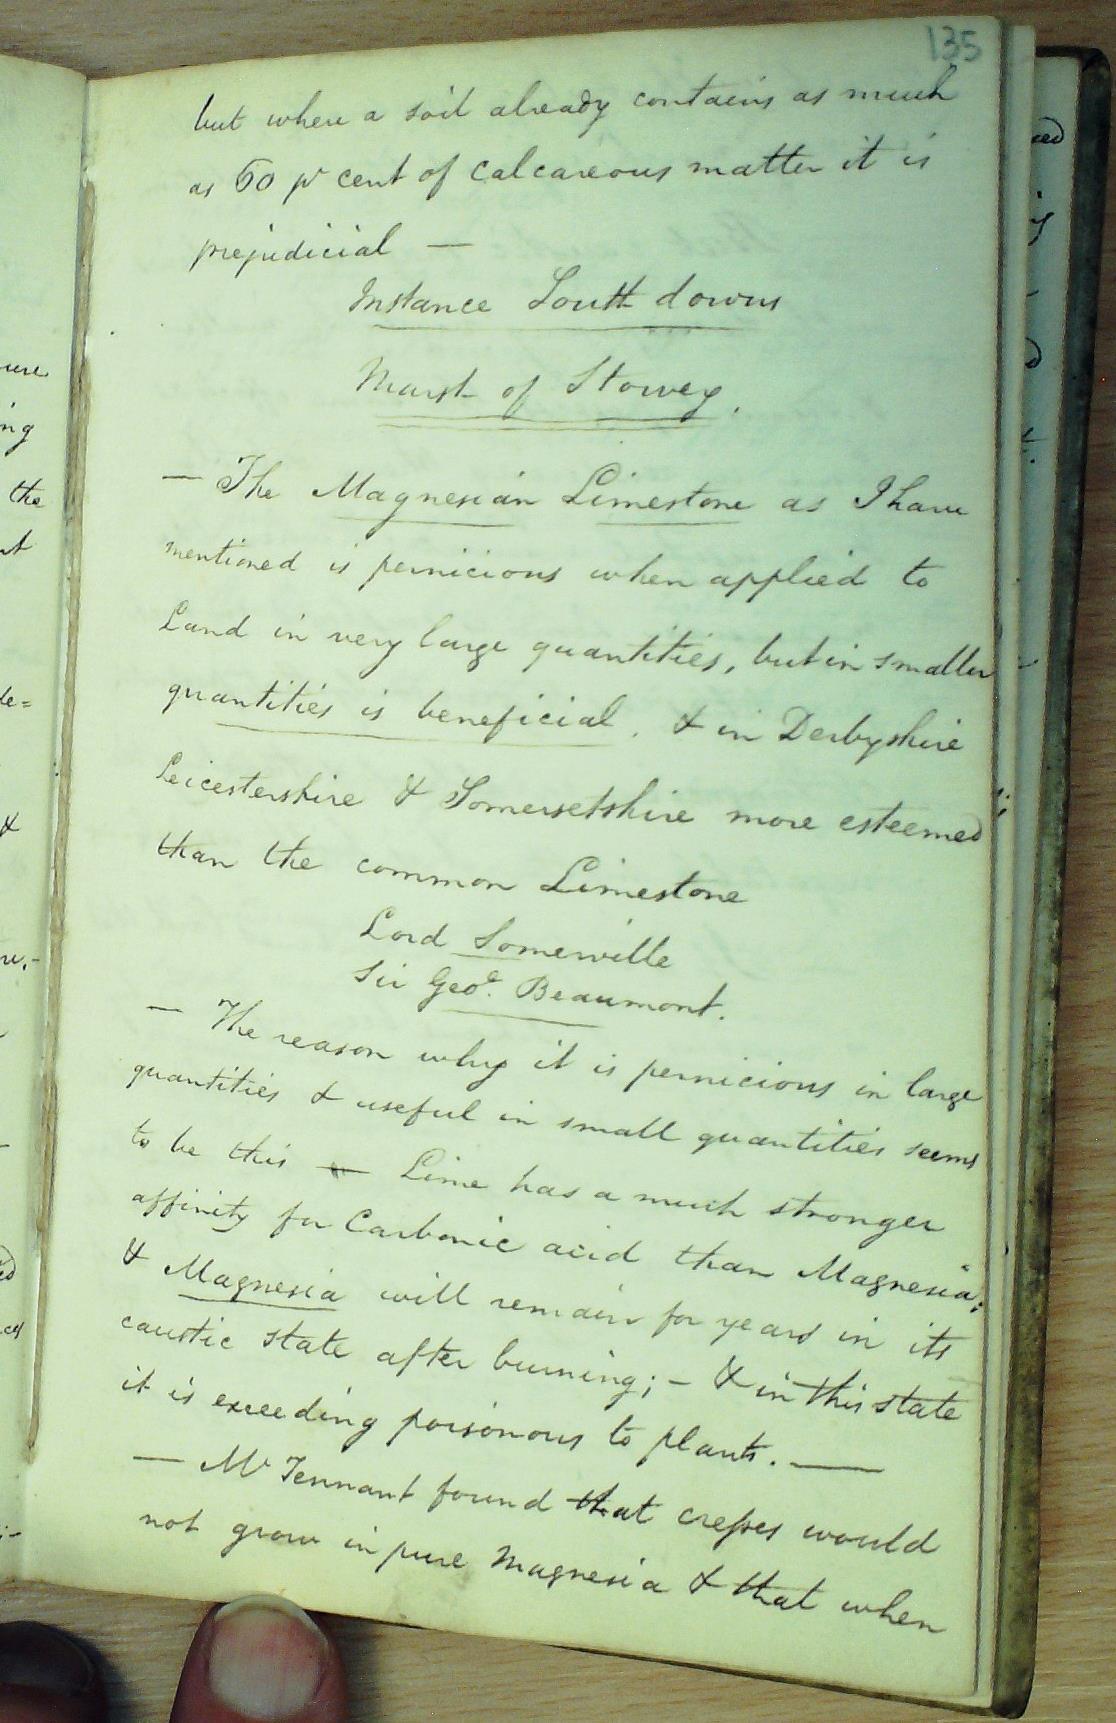 135
but where a soil already contains as much
as 60 pr cent of calcareous matter it is
prejudicial —
Instance South downs
Marsh of Stowey.
— The Magnesian Limestone as I have
mentioned is pernicious when applied to
Land in very large quantities, but in smaller
quantities is beneficial. & in Derbyshire
Leicestershire & Somersetshire more esteemed
than the common Limestone
Lord Somerville
Sir Geoe. Beaumont.
— The reason why it is pernicious in large
quantities & useful in small quantities seems
to be this — Lime has a much stronger
affinity for Carbonic acid than Magnesia;
& Magnesia will remain for years in its
caustic state after burning; — & in this state
it is exceeding poisonous to plants. —
— Mr Tennant found that cresses would
not grow in pure Magnesia & that when
ure
ing
the
de=
&